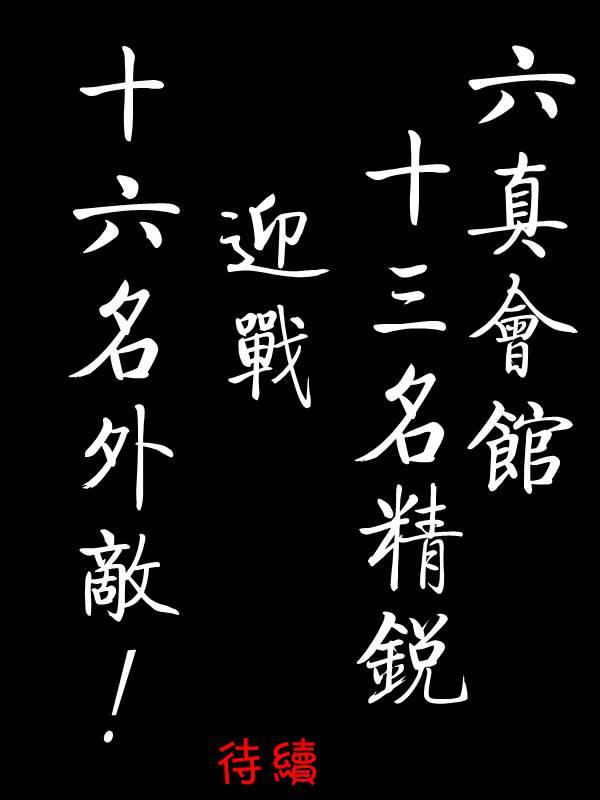 六真會館
十三名精鋭
迎戰
十六名外敵！
待續